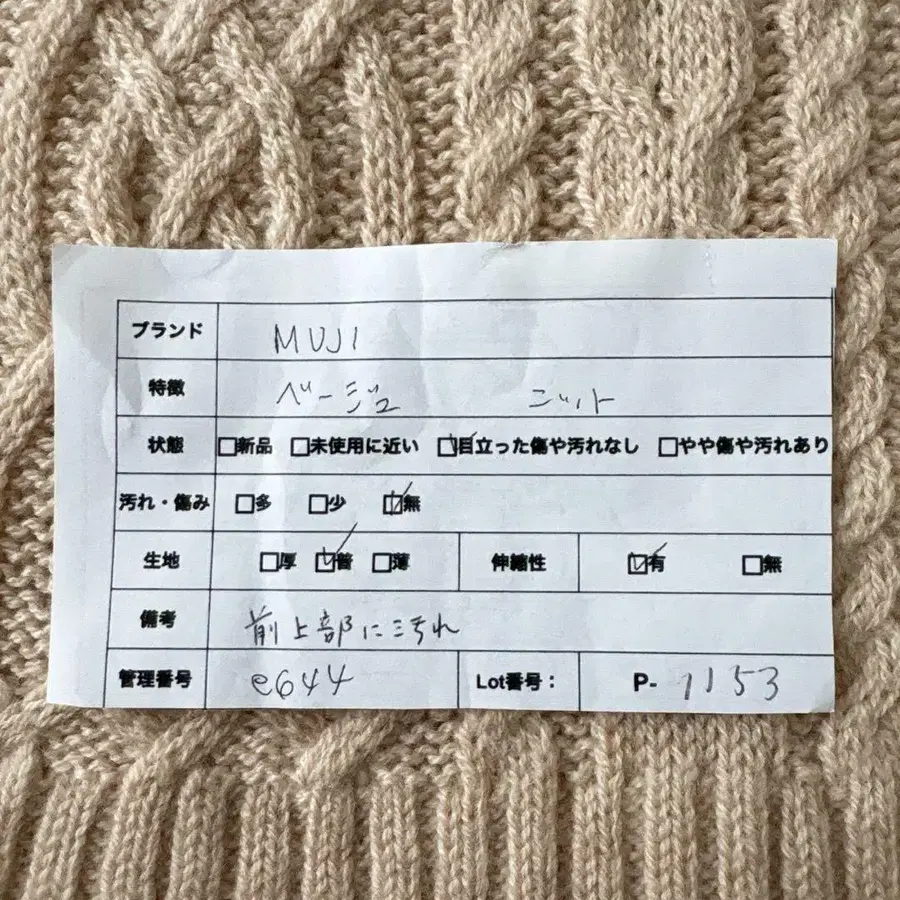 ブランド MUJI
特徴 ベージュ ニット
状態 □新品 □未使用に近い ☑目立った傷や汚れなし □やや傷や汚れあり
汚れ・傷み □多 □少 ☑無
生地 □厚 ☑普 □薄 伸縮性 ☑有 □無
備考 前上部に汚れ
管理番号 e644 Lot番号： P- 1153